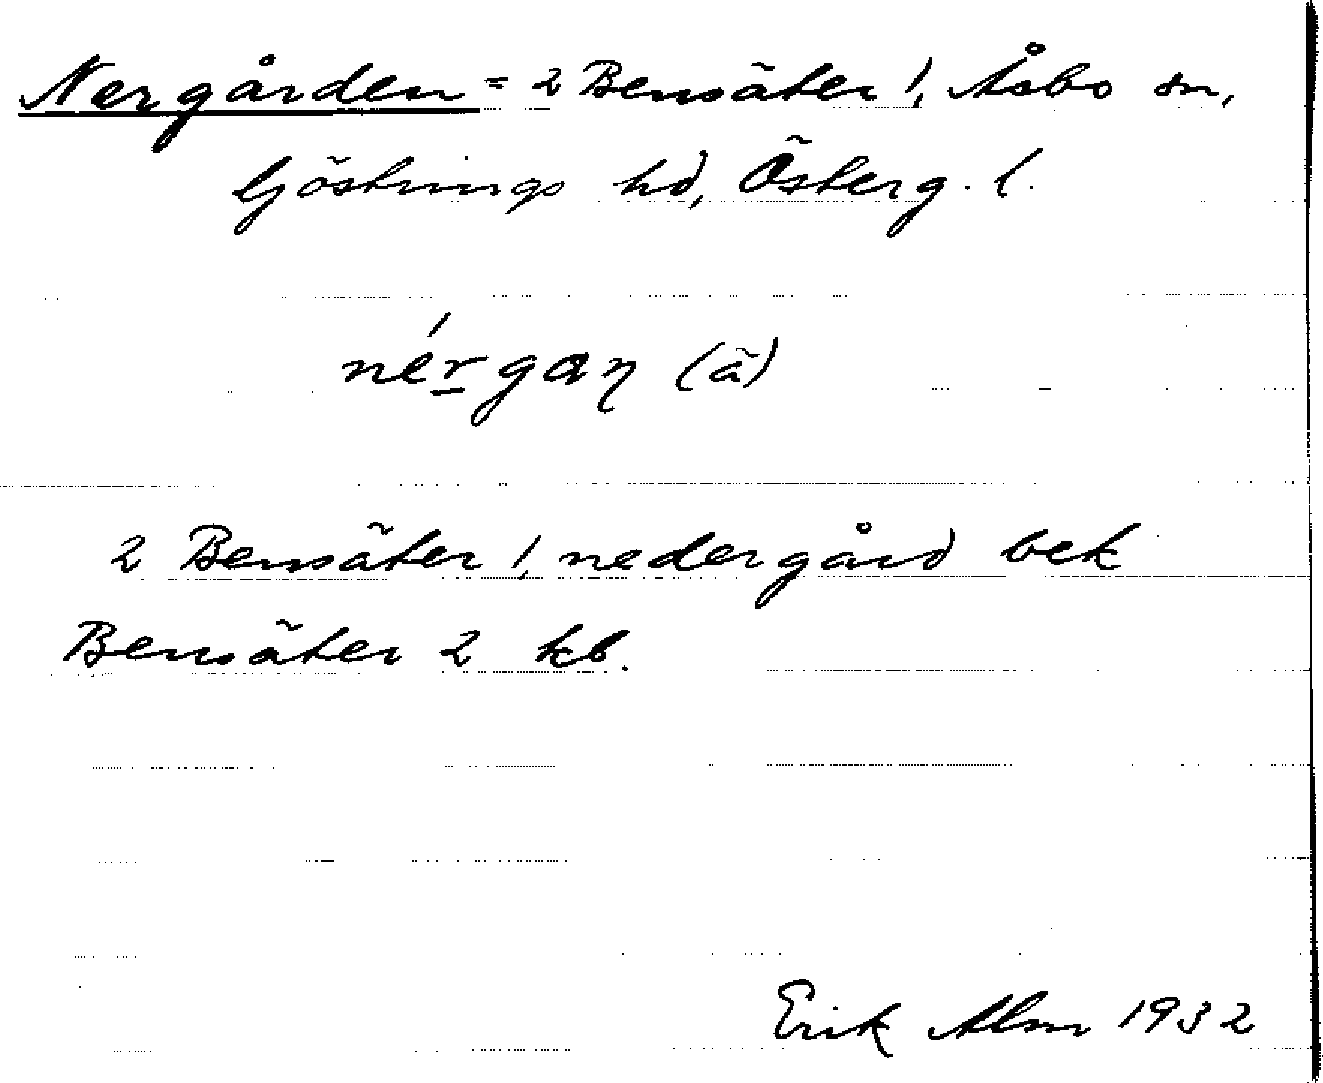 Nergården = 2 Bensäter /, Åsbo sn,
Göstrings hd, Österg. l.
nérgaɳ (ä)
2 Bensäter /, nedergård bek
Bensäter 2 kb.
Erik Alm 1932